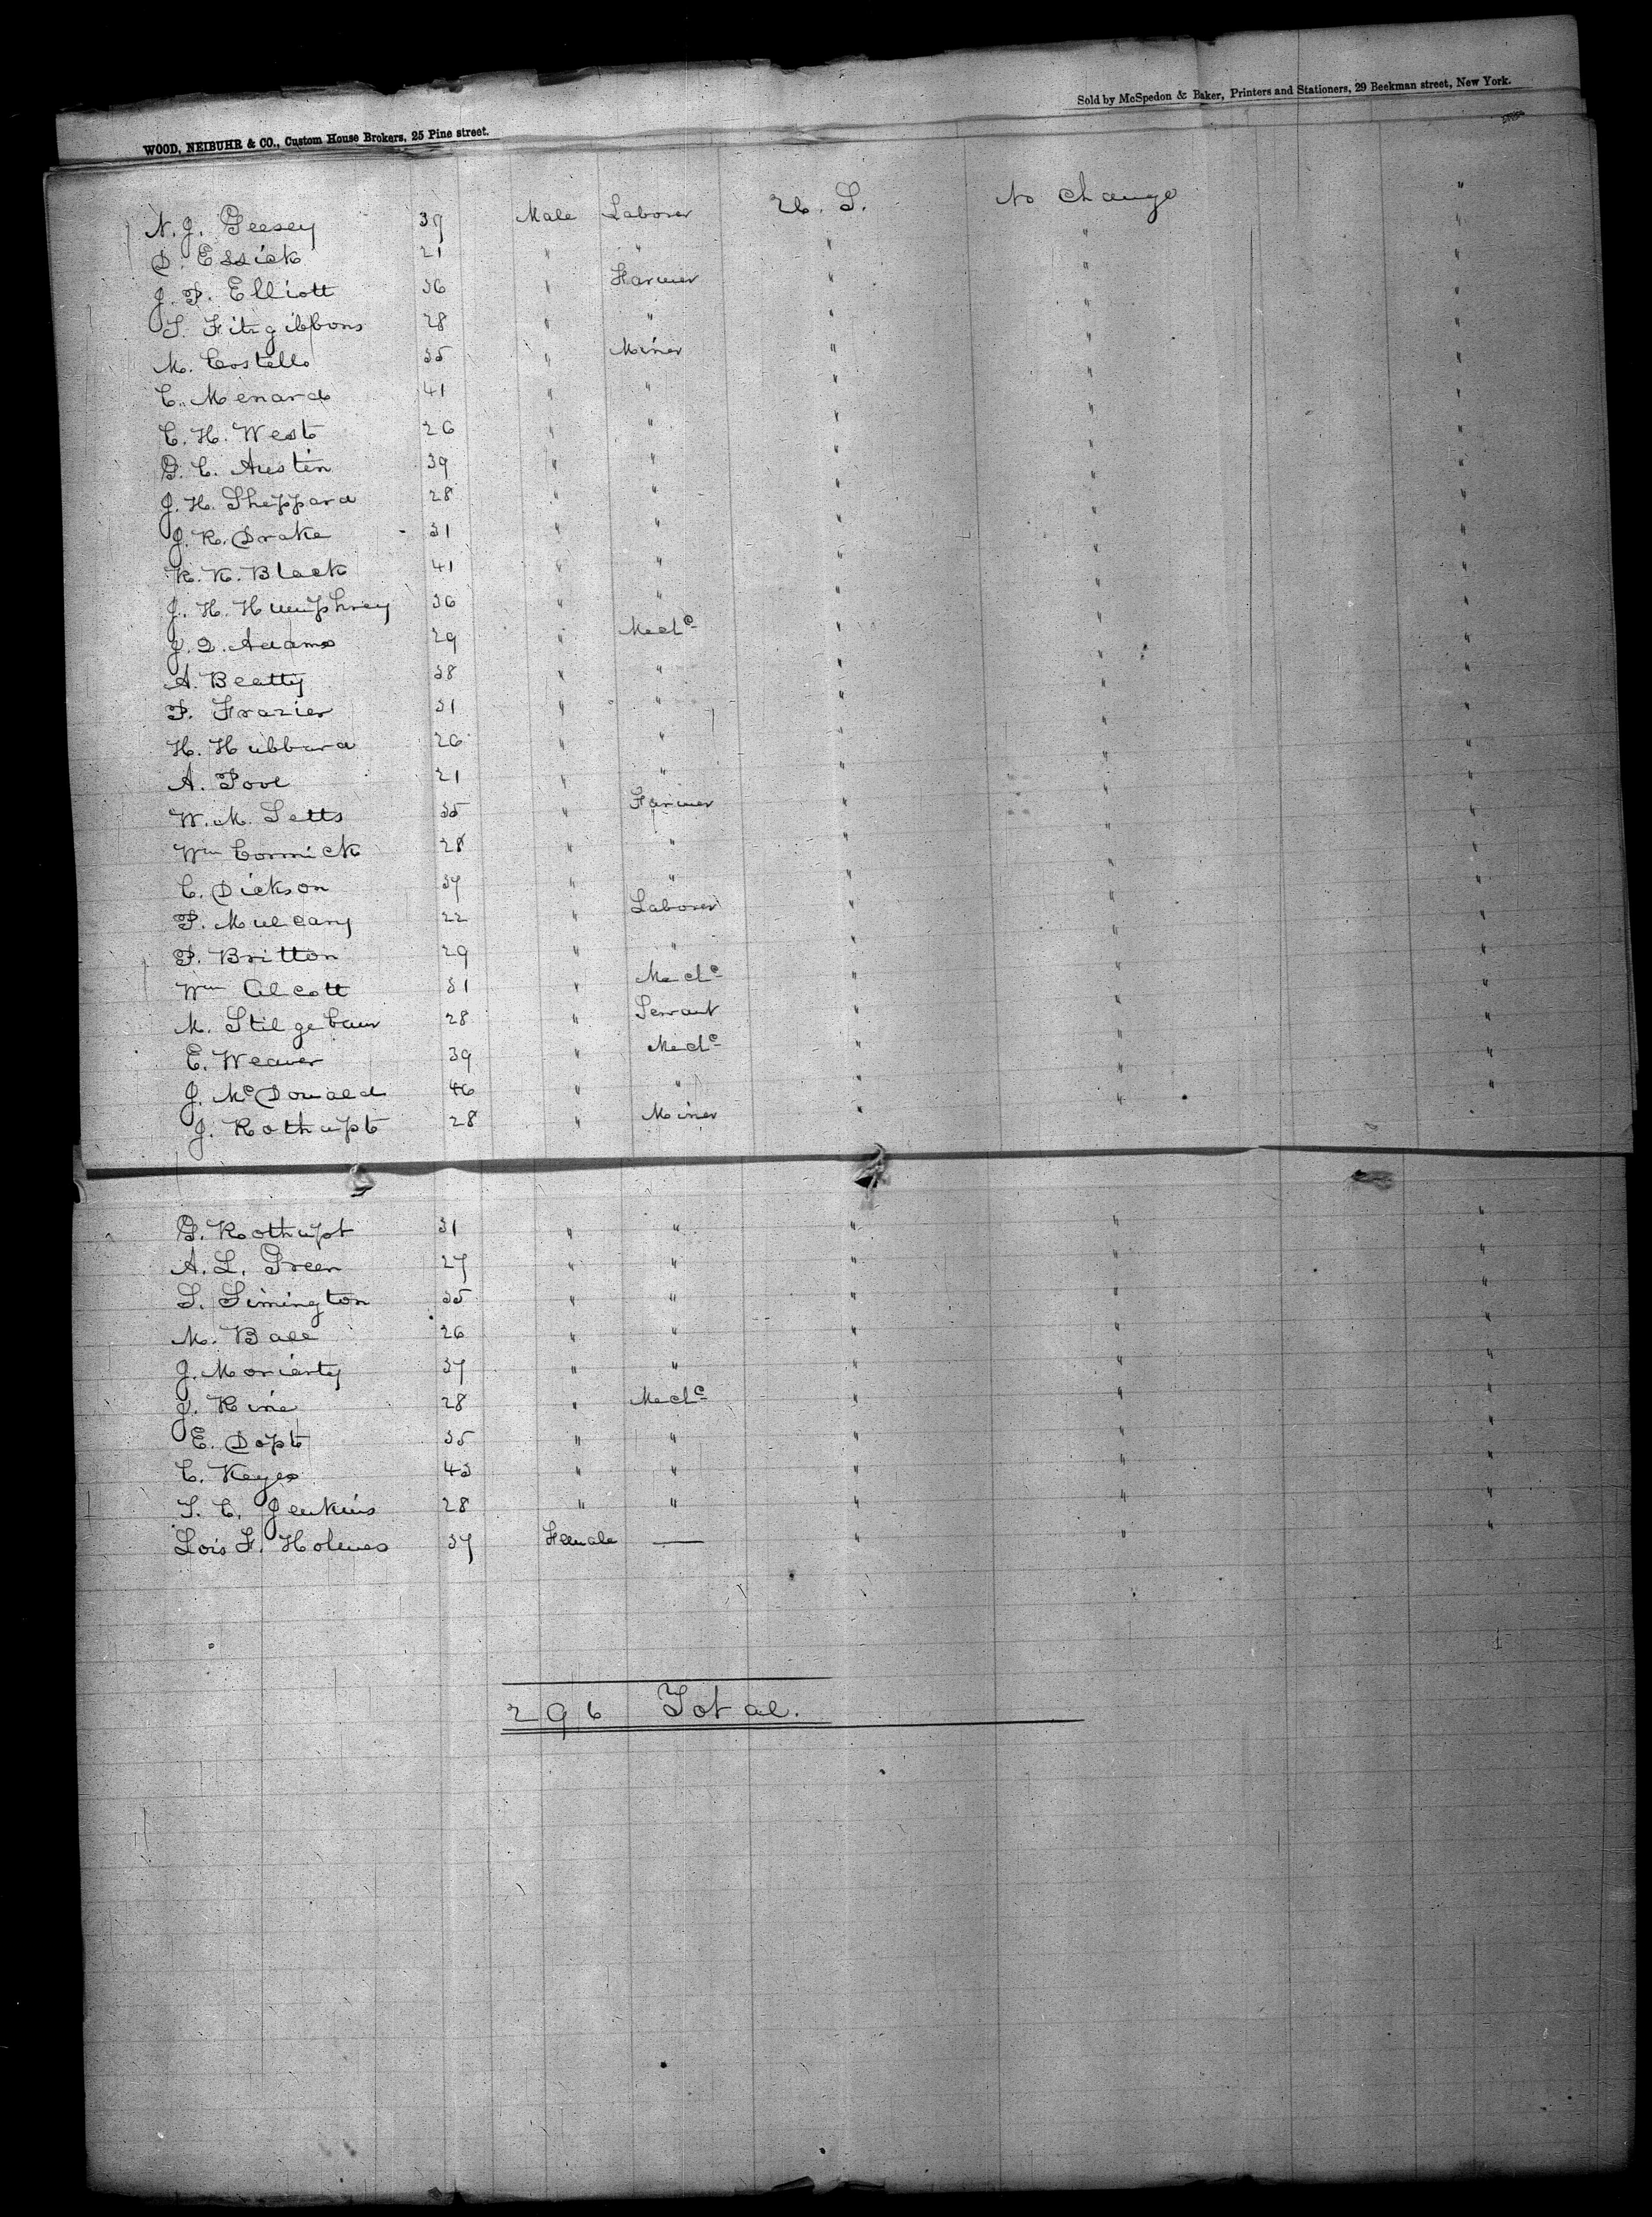 WOOD, NEIBUHR & CO., Custom House Brokers, 25 Pine street. Sold by McSpedon & Baker, Printers and Stationers, 29 Beekman street, New York.
N. J. Geesey 37 Male Laborer U. S. No change "
D. Essick 21 " " " " "
J. P. Elliott 36 " Farmer " " "
T. Fitzgibbons 28 " " " " "
M. Costello 35 " Miner " " "
C. Menard 41 " " " " "
C. H. West 26 " " " " "
G. C. Austin 39 " " " " "
J. H. Sheppard 28 " " " " "
J. R. Drake 31 " " " " "
K. K. Black 41 " " " " "
J. H. Humphrey 36 " " " " "
J. Q. Adams 29 " Mech^c " " "
A. Beatty 38 " " " " "
P. Frazier 31 " " " " "
H. Hubbard 26 " " " " "
A. Pool 21 " " " " "
W. M. Letts 35 " Farmer " " "
Wm Cormick 28 " " " " "
C. Dickson 37 " " " " "
P. Mulcany 22 " Laborer " " "
P. Britton 29 " " " " "
Wm Alcott 31 " Mech^c " " "
M. Stilgebaur 28 " Servant " " "
E. Weaver 39 " Mech^c " " "
J. McDonald 46 " " " " "
J. Rothupt 28 " Miner " " "
G. Rothupt 31 " " " " "
A. L. Green 27 " " " " "
S. Simington 35 " " " " "
M. Ball 26 " " " " "
J. Moriarty 37 " " " " "
J. Kine 28 " Mech^c " " "
E. Dopt 35 " " " " "
C. Keyes 43 " " " " "
T. C. Jenkins 28 " " " " "
Lois F. Holmes 37 Female — " " "
296 Total.